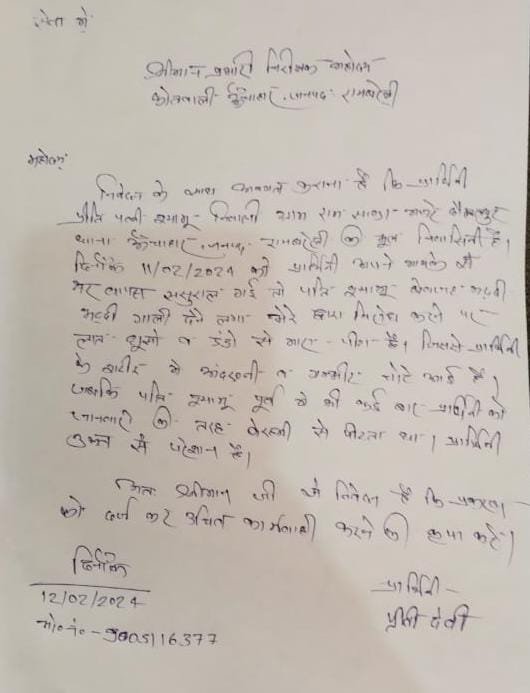 सेवा में
श्रीमान प्रभारी निरीक्षक महोदय
कोतवाली ऊँचाहार, जनपद- रायबरेली
महोदय,
निवेदन के साथ अवगत कराना है कि प्रार्थिनी
प्रीति पत्नी श्यामू निवासी ग्राम राम सांडा मजरे
थाना ऊँचाहार, जनपद रायबरेली की मूल निवासिनी है।
दिनाँक 11/02/2024 को प्रार्थिनी अपने मायके से
घर वापस ससुराल गई तो पति श्यामू बेवजह भद्दी
भद्दी गाली देने लगा मेरे द्वारा विरोध करने पर
लात घूसों व डंडो से मारा-पीटा है। जिससे प्रार्थिनी
के शरीर में अंदरूनी व गम्भीर चोटे आई है।
जबकि पति श्यामू पूर्व में भी कई बार प्रार्थिनी को
जानवरों की तरह बेरहमी से पीटता था। प्रार्थिनी
उक्त से परेशान है।
अतः श्रीमान जी से निवेदन है कि प्रकरण
को दर्ज कर उचित कार्यवाही करने की कृपा करें।
दिनाँक
12/02/2024
मो०नं०-9005116377
प्रार्थिनी-
प्रीती देवी